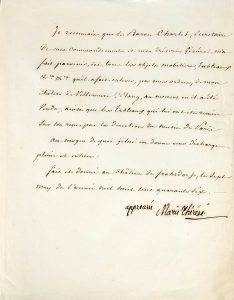 Je reconnais que le Baron Charlet, Secrétaire
de mes Commandements et mon trésorier Général, m'a
fait parvenir, ici, tous les objets mobiliers, tableaux
&a &a &a qu'il a fait enlever, par mes ordres, de mon
château de Villeneuve l'Etang, au moment où il a été
vendu, ainsi que les tableaux qui lui ont été remis
sur son reçu par la direction du Musée de Paris.
Au moyen de quoi je lui en donne une décharge
pleine et entière.
fait et donné au Château de Frohsdorf, le sept
may de l'année mil huit cent quarante six
approuvé Marie Thérèse